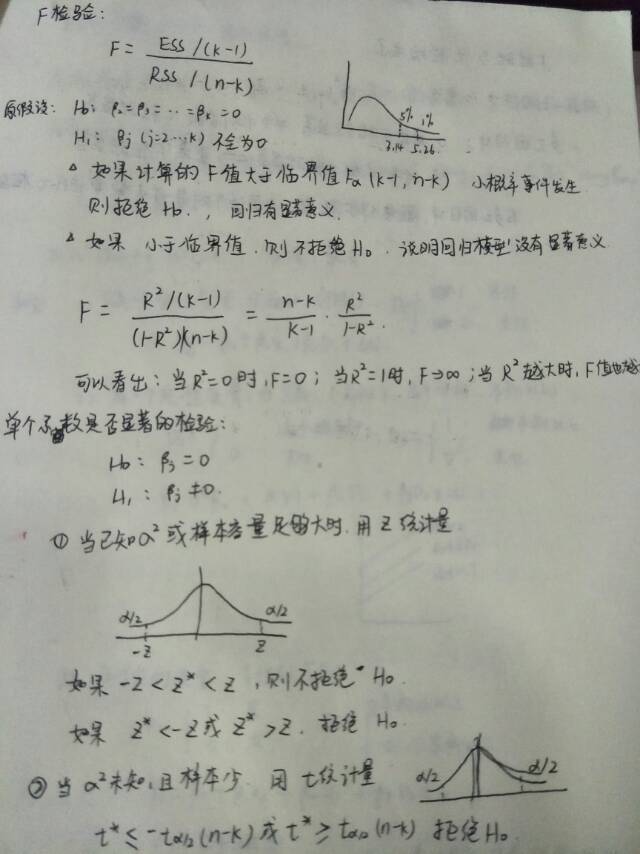 F检验:
F = ESS/(k-1) / RSS/(n-k)
原假设: H₀: β₂=β₃=…=βₖ=0
H₁: βj (j=2…k) 不全为0
5% 1%
3.14 5.26
△ 如果计算的F值大于临界值Fα(k-1, n-k) 小概率事件发生
则拒绝H₀., 回归有显著意义.
△ 如果 小于临界值.则不拒绝H₀. 说明回归模型没有显著意义.
F = R²/(k-1) / (1-R²)/(n-k) = n-k / k-1 · R² / 1-R².
可以看出: 当R²=0时, F=0; 当R²=1时, F→∞; 当R²越大时, F值也越
单个系数是否显著的检验:
H₀: βj=0
H₁: βj≠0.
① 当已知α²或样本容量足够大时.用Z统计量
α/2 α/2
-Z Z
如果 -Z<Z*<Z ,则不拒绝 H₀.
如果 Z*<-Z或Z*>Z. 拒绝 H₀.
② 当α²未知,且样本少. 用t统计量
α/2 α/2
t*≤-tα/2(n-k)或t*≥tα/2(n-k) 拒绝H₀.